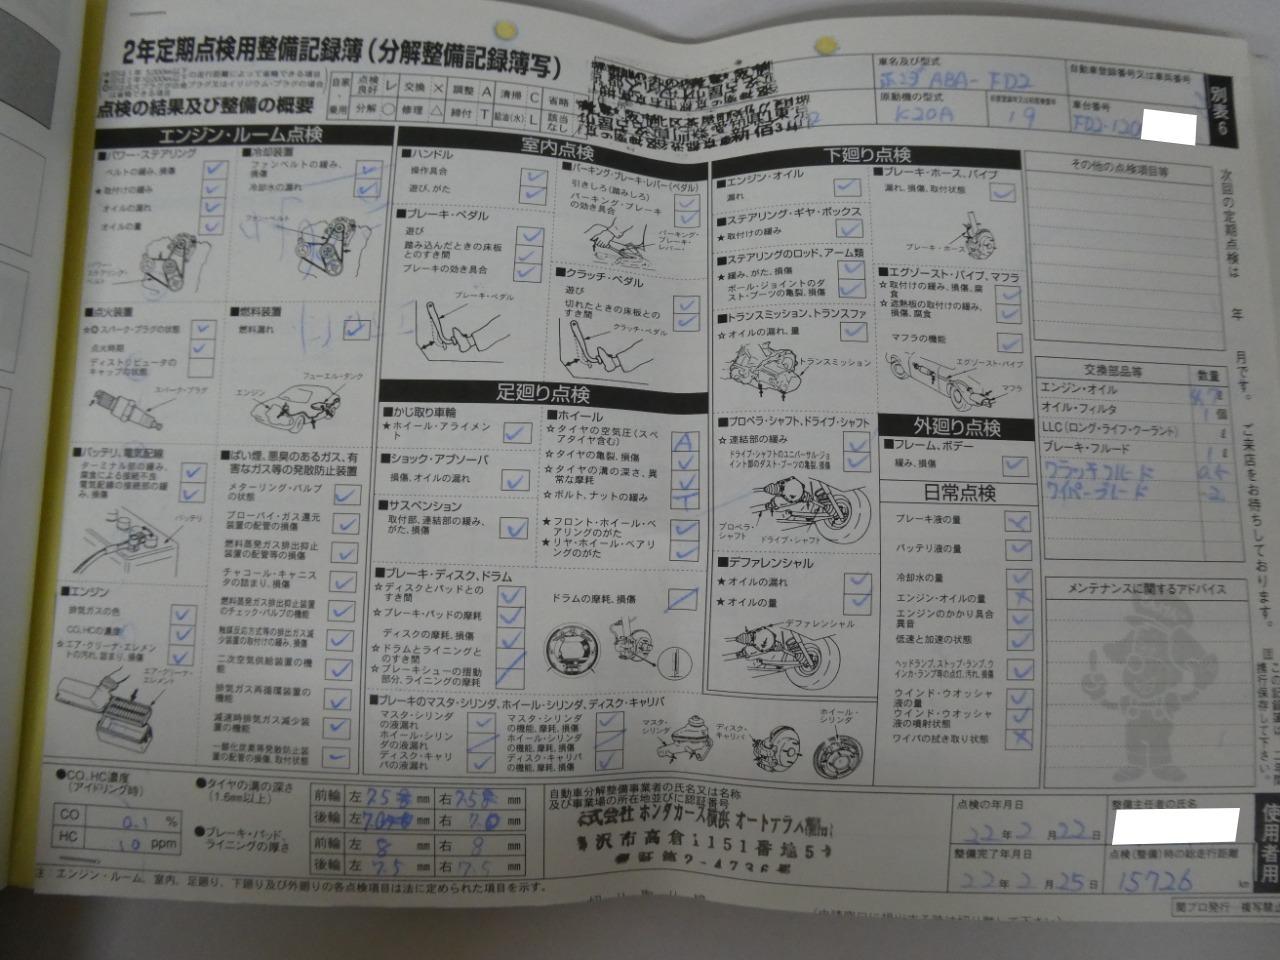 2年定期点検用整備記録簿(分解整備記録簿写)
点検の結果及び整備の概要
点検良好 レ 交換 × 調整 A 清掃 C 省略
分解 ○ 修理 △ 締付 T 給油(水) L 該当なし
車名及び型式
ホンダ ABA-FD2
自動車登録番号又は車両番号
原動機の型式
K20A
19
車台番号
FD2-120
別表6
エンジン・ルーム点検
■パワー・ステアリング
ベルトの緩み、損傷
★取付けの緩み
オイルの漏れ
オイルの量
パワー・ステアリング・ベルト
■冷却装置
ファンベルトの緩み、損傷
冷却水の漏れ
ファン・ベルト
■点火装置
☆◎スパーク・プラグの状態
点火時期
ディストリビュータのキャップの状態
スパーク・プラグ
■燃料装置
燃料漏れ
フューエル・タンク
エンジン
■バッテリ、電気配線
ターミナル部の緩み、腐食による接続不良
電気配線の接続部の緩み、損傷
バッテリ
■エンジン
排気ガスの色
CO、HCの濃度
☆エア・クリーナ・エレメントの汚れ、詰まり、損傷
エア・クリーナ・エレメント
■ばい煙、悪臭のあるガス、有害なガス等の発散防止装置
メターリング・バルブの状態
ブローバイ・ガス還元装置の配管の損傷
燃料蒸発ガス排出抑止装置の配管等の損傷
チャコール・キャニスタの詰まり、損傷
燃料蒸発ガス排出抑止装置のチェック・バルブの機能
触媒反応方式等の排出ガス減少装置の取付けの緩み、損傷
二次空気供給装置の機能
排気ガス再循環装置の機能
減速時排気ガス減少装置の機能
一酸化炭素等発散防止装置の配管の損傷、取付状態
室内点検
■ハンドル
操作具合
遊び、がた
■ブレーキ・ペダル
遊び
踏み込んだときの床板とのすき間
ブレーキの効き具合
ブレーキ・ペダル
■パーキング・ブレーキ・レバー(ペダル)
引きしろ(踏みしろ)
パーキング・ブレーキの効き具合
パーキング・ブレーキ・レバー
■クラッチ・ペダル
遊び
切れたときの床板とのすき間
クラッチ・ペダル
足廻り点検
■かじ取り車輪
★ホイール・アライメント
■ショック・アブソーバ
損傷、オイルの漏れ
■サスペンション
取付部、連結部の緩み、がた、損傷
■ホイール
☆タイヤの空気圧(スペアタイヤ含む) A
☆タイヤの亀裂、損傷
☆タイヤの溝の深さ、異常な摩耗
☆ボルト、ナットの緩み T
★フロント・ホイール・ベアリングのがた
★リヤ・ホイール・ベアリングのがた
■ブレーキ・ディスク、ドラム
☆ディスクとパッドとのすき間
☆ブレーキ・パッドの摩耗
ディスクの摩耗、損傷
☆ドラムとライニングとのすき間
☆ブレーキシューの摺動部分、ライニングの摩耗
ドラムの摩耗、損傷
■ブレーキのマスタ・シリンダ、ホイール・シリンダ、ディスク・キャリパ
マスタ・シリンダの液漏れ
ホイール・シリンダの液漏れ
ディスク・キャリパの液漏れ
マスタ・シリンダの機能、摩耗、損傷
ホイール・シリンダの機能、摩耗、損傷
ディスク・キャリパの機能、摩耗、損傷
マスタ・シリンダ
ディスク・キャリパ
ホイール・シリンダ
下廻り点検
■エンジン・オイル
漏れ
■ステアリング・ギヤ・ボックス
★取付けの緩み
■ステアリングのロッド、アーム類
★緩み、がた、損傷
ボール・ジョイントのダスト・ブーツの亀裂、損傷
■トランスミッション、トランスファ
☆オイルの漏れ、量
トランスミッション
■プロペラ・シャフト、ドライブ・シャフト
☆連結部の緩み
ドライブ・シャフトのユニバーサル・ジョイント部のダスト・ブーツの亀裂、損傷
プロペラ・シャフト
ドライブ・シャフト
■デファレンシャル
★オイルの漏れ
★オイルの量
デファレンシャル
■ブレーキ・ホース、パイプ
漏れ、損傷、取付状態
ブレーキ・ホース
■エグゾースト・パイプ、マフラ
☆取付けの緩み、損傷、腐食
☆遮熱板の取付けの緩み、損傷、腐食
マフラの機能
エグゾースト・パイプ
マフラ
外廻り点検
■フレーム、ボデー
緩み、損傷
日常点検
ブレーキ液の量
バッテリ液の量
冷却水の量
エンジン・オイルの量
エンジンのかかり具合異音
低速と加速の状態
ヘッドランプ、ストップ・ランプ、ウインカ・ランプ等の点灯、汚れ、損傷
ウインド・ウオッシャ液の量
ウインド・ウオッシャ液の噴射状態
ワイパの拭き取り状態
その他の点検項目等
交換部品等 数量
エンジン・オイル 4.7 ℓ
オイル・フィルタ 1 個
LLC(ロング・ライフ・クーラント) ℓ
ブレーキ・フルード 1 ℓ
クラッチフルード
ワイパーブレード 2
メンテナンスに関するアドバイス
次回の定期点検は 年 月です。ご来店をお待ちしております。
●CO、HC濃度
(アイドリング時)
CO 0.1 %
HC 10 ppm
●タイヤの溝の深さ
(1.6mm以上)
前輪 左 7.5 mm 右 7.5 mm
後輪 左 7.0 mm 右 7.0 mm
●ブレーキ・パッド、ライニングの厚さ
前輪 左 8 mm 右 8 mm
後輪 左 7.5 mm 右 7.5 mm
自動車分解整備事業者の氏名又は名称及び事業場の所在地並びに認証番号
式会社 ホンダカーズ横浜 オートテラス
沢市高倉1151番地5
点検の年月日
22年2月22日
整備完了年月日
22年2月25日
整備主任者の氏名
点検(整備)時の総走行距離
15726 km
使用者用
注 エンジン・ルーム、室内、足廻り、下廻り及び外廻りの各点検項目は法に定められた項目を示す。
関プロ発行 複写禁止